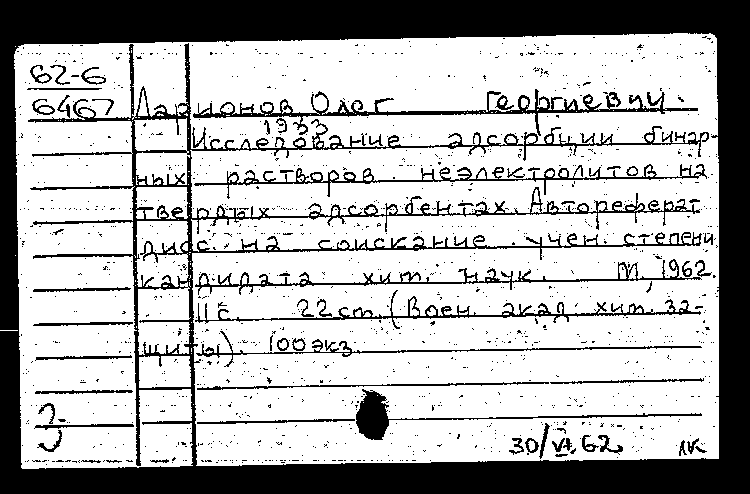 62-6
6467 Ларионов Олег Георгиевич.
1933
Исследование адсорбции бинар-
ных растворов неэлектролитов на
твердых адсорбентах. Автореферат
дисс. на соискание учен. степени
кандидата хим. наук. М., 1962.
11 с. 22 cm. (Воен. акад. хим. за-
щиты). 100 экз.
30/VI 62 лк